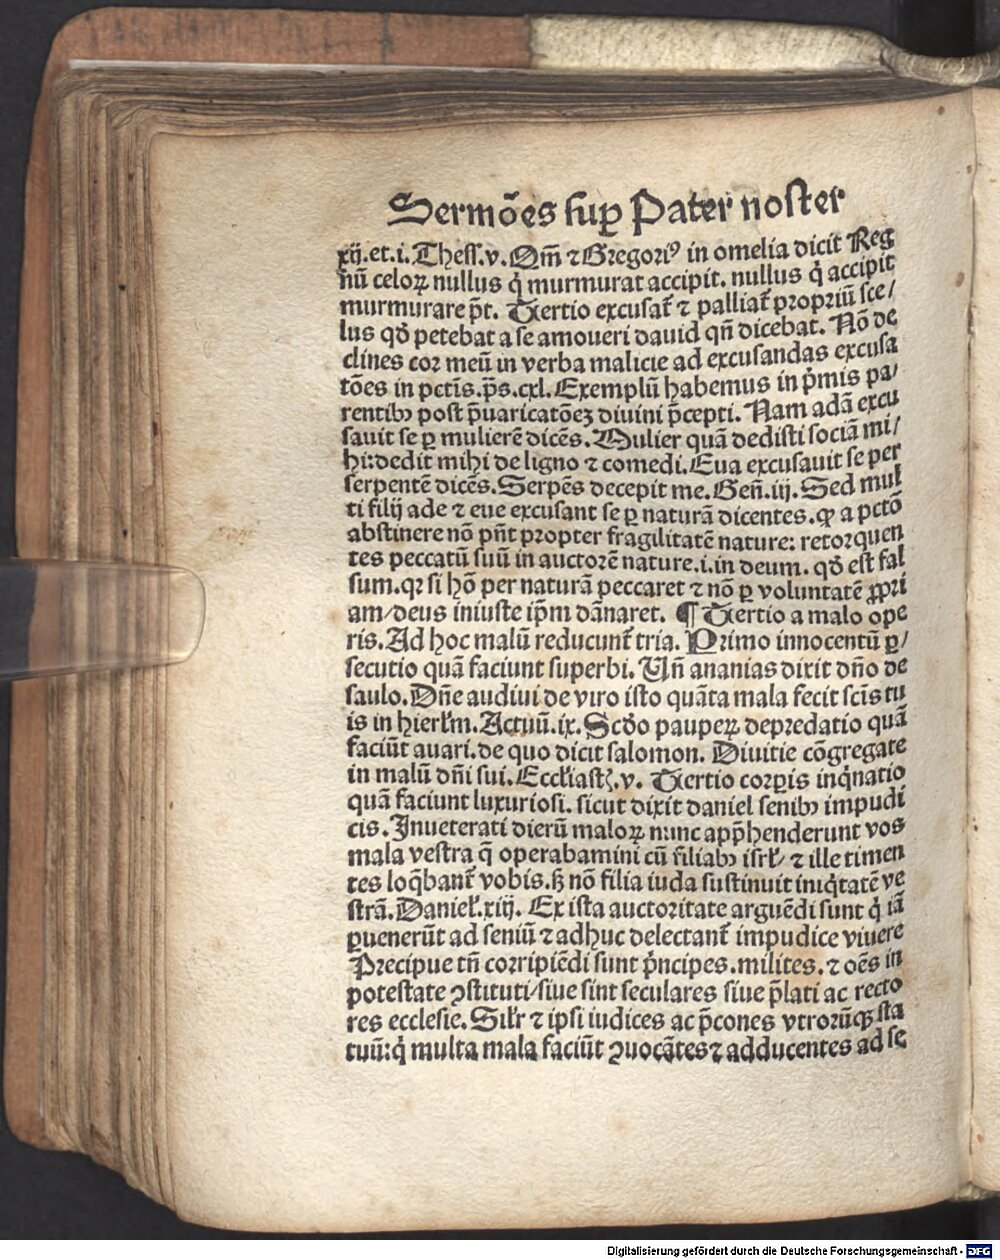 Sermões suꝑ Pater noster
xij.et.i.Thess.v. Qm̄ ⁊ Gregori⁹ in omelia dicit Reg
nū celoꝝ nullus q̇ murmurat accipit. nullus q̇ accipit
murmurare p̄t. Tertio excusat̄ ⁊ palliat̄ propriū sce/
lus qḋ petebat a se amoueri dauid qn̄ dicebat. Nō de
clines cor meū in verba malicie ad excusandas excusa
tōes in pctīs.p̄s.cxl. Exemplū habemus in ṗmis pa/
rentibꝫ post p̄uaricatōeꝫ diuini p̄cepti. Nam adā excu
sauit se ꝑ mulierē dicēs. Mulier quā dedisti sociā mi/
hi:dedit mihi de ligno ⁊ comedi. Eua excusauit se per
serpentē dicēs. Serpēs decepit me. Geñ.iij. Sed mul
ti filij ade ⁊ eue excusant se ꝑ naturā dicentes. ꝙ a pctō
abstinere nō pn̄t propter fragilitatē nature: retorquen
tes peccatū suū in auctorē nature.i.in deum. qḋ est fal
sum. qꝛ si hō per naturā peccaret ⁊ nō ꝑ voluntatē ꝓpri
am/deus iniuste ip̄m dānaret. ¶ Tertio a malo ope
ris. Ad hoc malū reducunt̄ tria. Primo innocentū ꝑ/
secutio quā faciunt superbi. Vn̄ ananias dixit dño de
saulo. Dn̄e audiui de viro isto quāta mala fecit scīs tu
is in hierłm. Actuū.ix. Scḋo pauperꝝ depredatio quā
faciūt auari. de quo dicit salomon. Diuitie cōgregate
in malū dñi sui. Eccłiastꝭ.v. Tertio corꝑis inq̇natio
quā faciunt luxuriosi. sicut dixit daniel senibꝫ impudi
cis. Inueterati dierū maloꝝ nunc app̄henderunt vos
mala vestra q̄ operabamini cū filiabꝫ isrł/ ⁊ ille timen
tes loq̄bant̄ vobis. ꝭ nō filia iuda sustinuit iniq̇tatē ve
strā. Danieł.xiij. Ex ista auctoritate arguēdi sunt q̇ iā
ꝑuenerūt ad seniū ⁊ adhuc delectant̄ impudice viuere
Precipue tñ corripiēdi sunt ṗncipes. milites. ⁊ oēs in
potestate ꝯstituti/siue sint seculares siue p̄lati ac recto
res ecclesie. Silr̄ ⁊ ipsi iudices ac p̄cones vtrorūqꝫ sta
tuū: q̇ multa mala faciūt ꝯuocātes ⁊ adducentes ad se
Digitalisierung gefördert durch die Deutsche Forschungsgemeinschaft - DFG